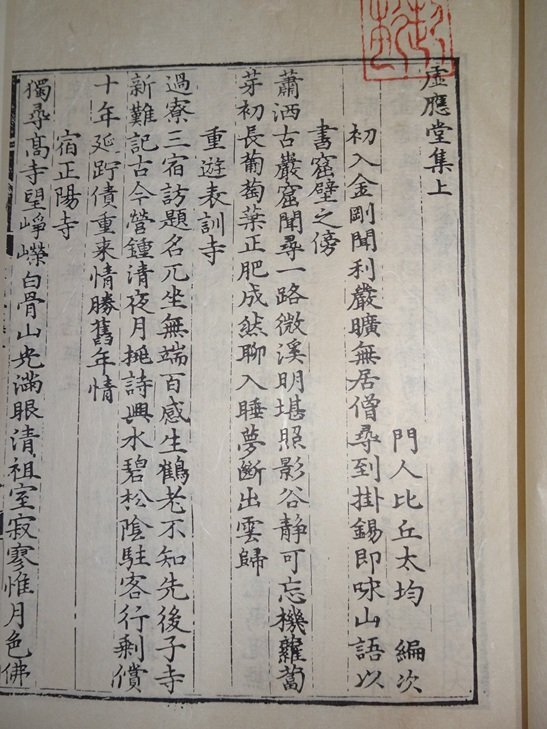 虛應堂集上
門人比丘太均 編次
初入金剛聞利巖曠無居僧尋到掛錫即咏山語以
書窟壁之傍
蕭洒古巖窟聞尋一路微溪明堪照影谷靜可忘機蘿蔔
芽初長葡萄葉正肥成然聊入睡夢斷出雲歸
重遊表訓寺
過寮三宿訪題名兀坐無端百感生鶴老不知先後子寺
新難記古今營鍾清夜月挑詩興水碧松陰駐客行剩償
十年延跱債重来情勝舊年情
宿正陽寺
獨尋髙寺望崢嶸白骨山光滿眼清祖室寂寥惟月色佛